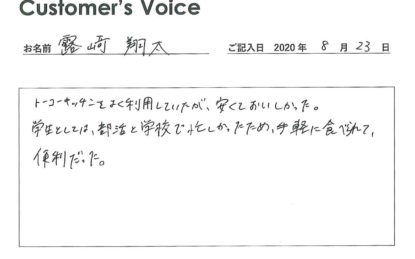 Customer's Voice
お名前 露﨑 翔太 ご記入日 2020 年 8 月 23 日
トーコーキッチンをよく利用していたが、安くておいしかった。
学生としては、部活と学校で忙しかったため、手軽に食べられて、
便利だった。